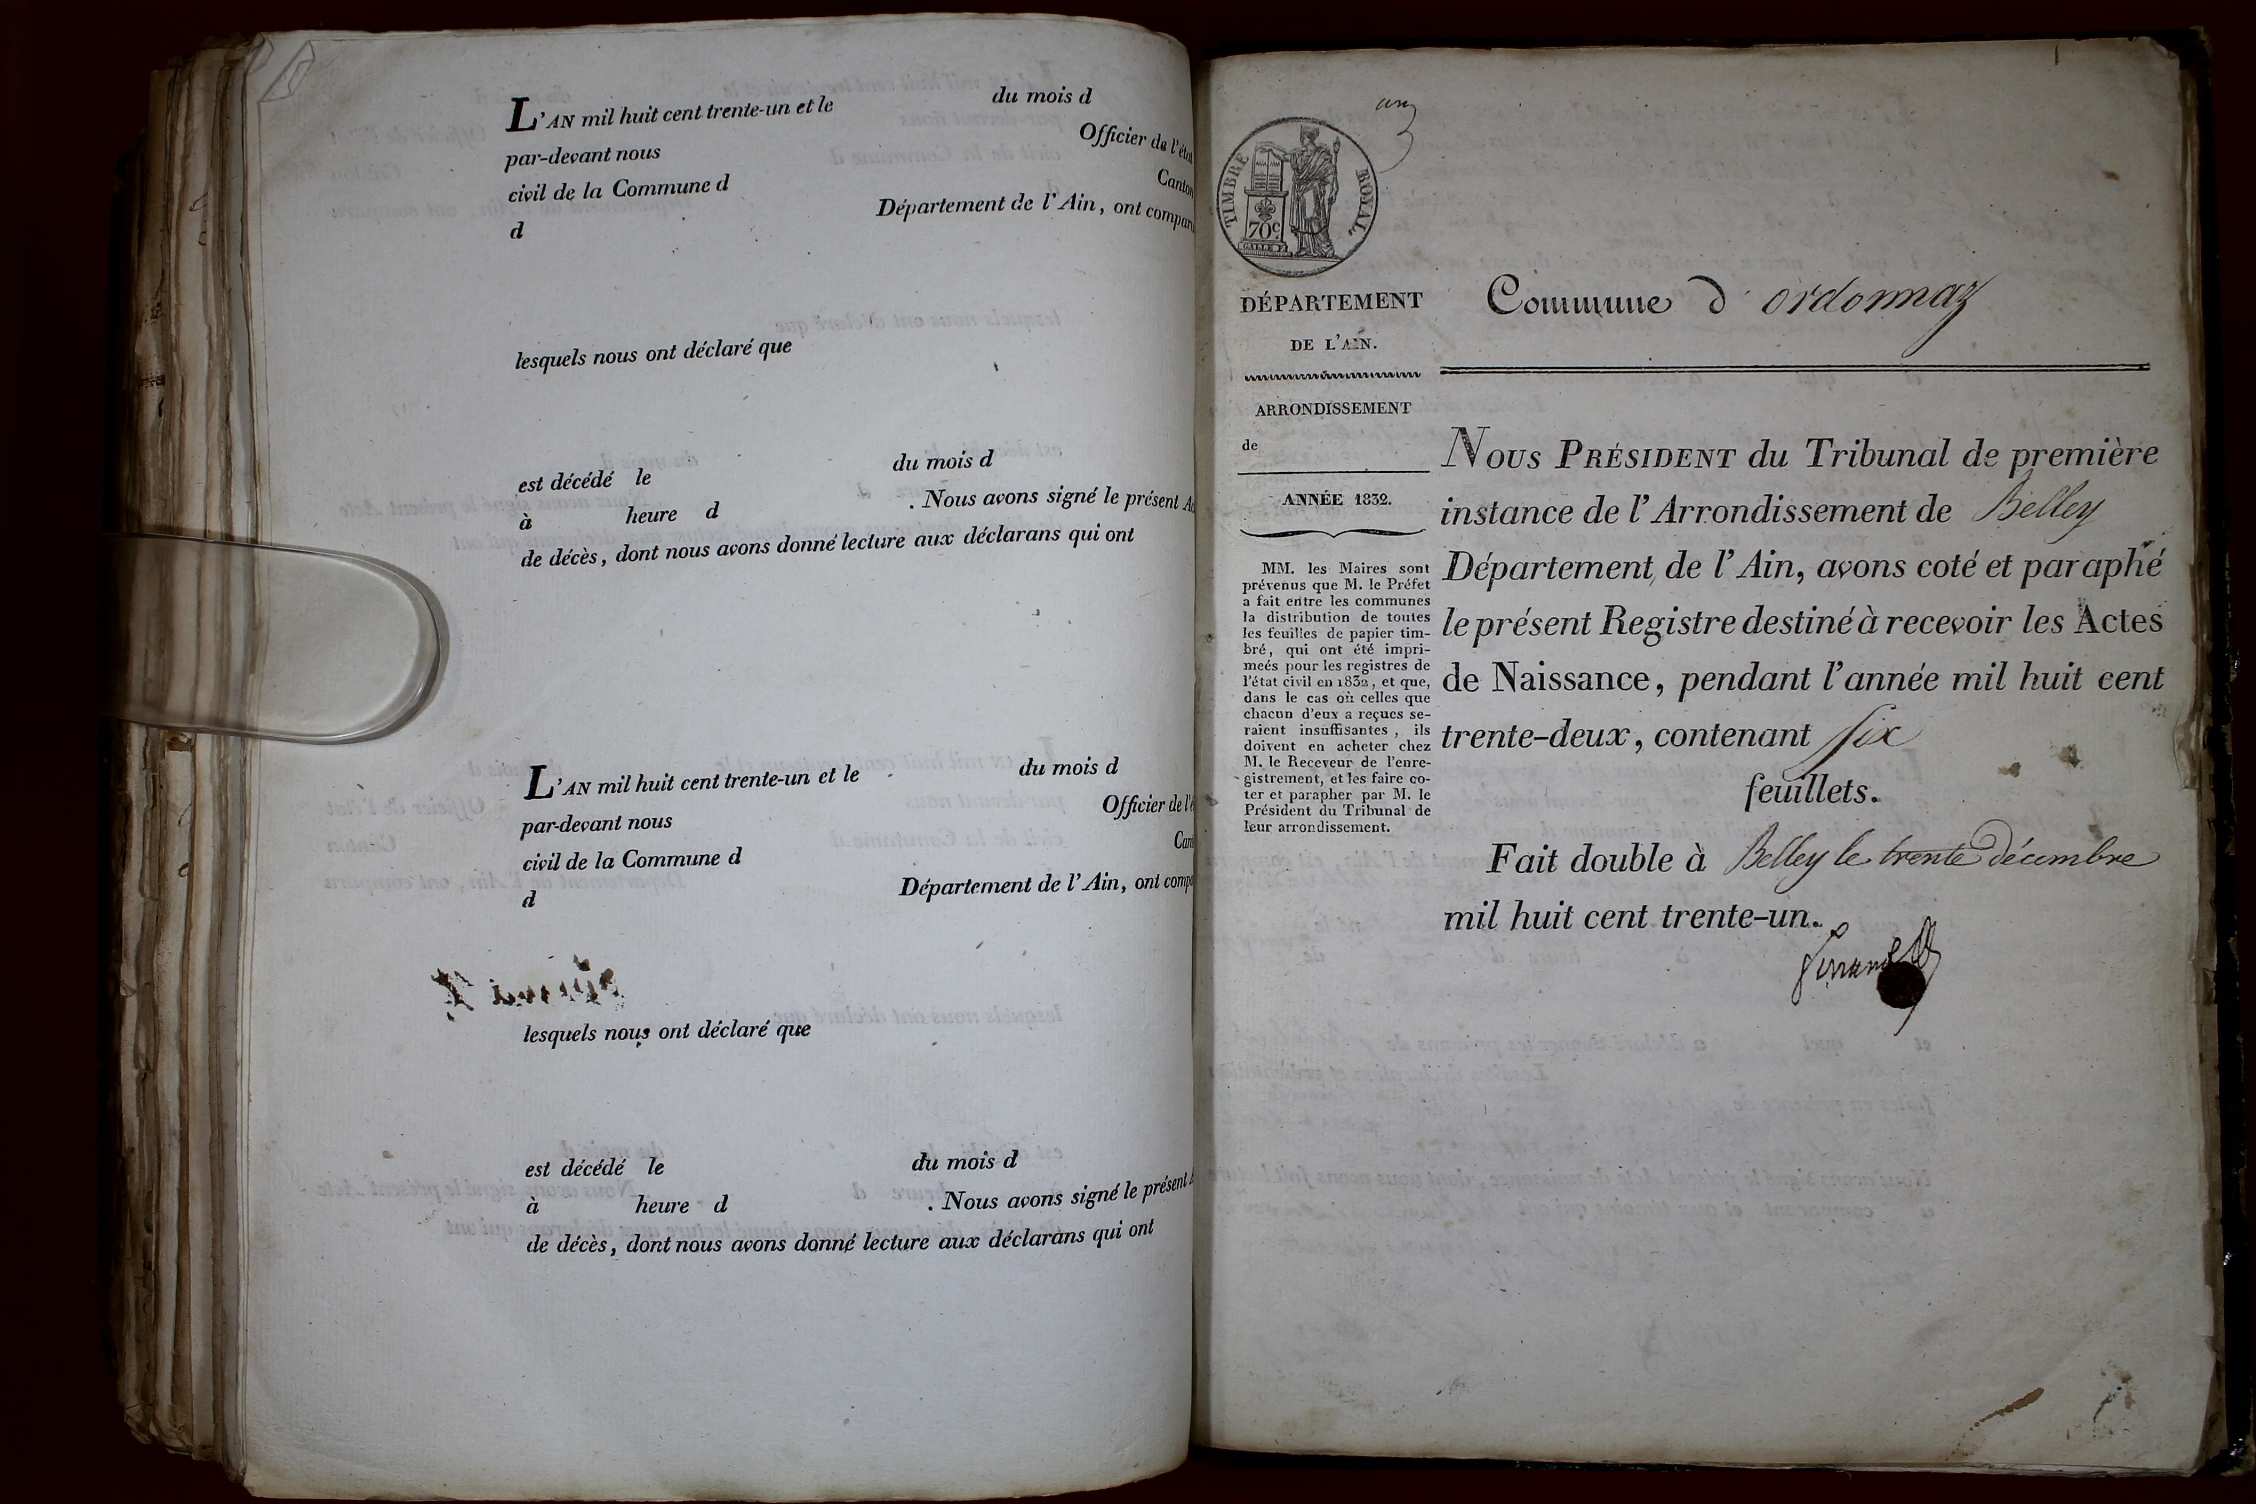 L'AN mil huit cent trente-un et le du mois d
par-devant nous Officier de l'état
civil de la Commune d Canton
d Département de l'Ain, ont comparu
lesquels nous ont déclaré que
est décédé le du mois d
à heure d . Nous avons signé le présent Ac
de décès, dont nous avons donné lecture aux déclarans qui ont
L'AN mil huit cent trente-un et le du mois d
par-devant nous Officier de l'é
civil de la Commune d Can
d Département de l'Ain, ont comp
lesquels nous ont déclaré que
est décédé le du mois d
à heure d . Nous avons signé le présent
de décès, dont nous avons donné lecture aux déclarans qui ont
1
TIMBRE ROYAL
70c
DÉPARTEMENT
DE L'AIN.
ARRONDISSEMENT
de
ANNÉE 1832.
MM. les Maires sont
prévenus que M. le Préfet
a fait entre les communes
la distribution de toutes
les feuilles de papier tim-
bré, qui ont été impri-
meés pour les registres de
l'état civil en 1832, et que,
dans le cas où celles que
chacun d'eux a reçues se-
raient insuffisantes, ils
doivent en acheter chez
M. le Receveur de l'enre-
gistrement, et les faire co-
ter et parapher par M. le
Président du Tribunal de
leur arrondissement.
Commune d'ordonnaz
NOUS PRÉSIDENT du Tribunal de première
instance de l'Arrondissement de Belley
Département de l'Ain, avons coté et paraphé
le présent Registre destiné à recevoir les Actes
de Naissance, pendant l'année mil huit cent
trente-deux, contenant six
feuillets.
Fait double à Belley le trente décembre
mil huit cent trente-un.